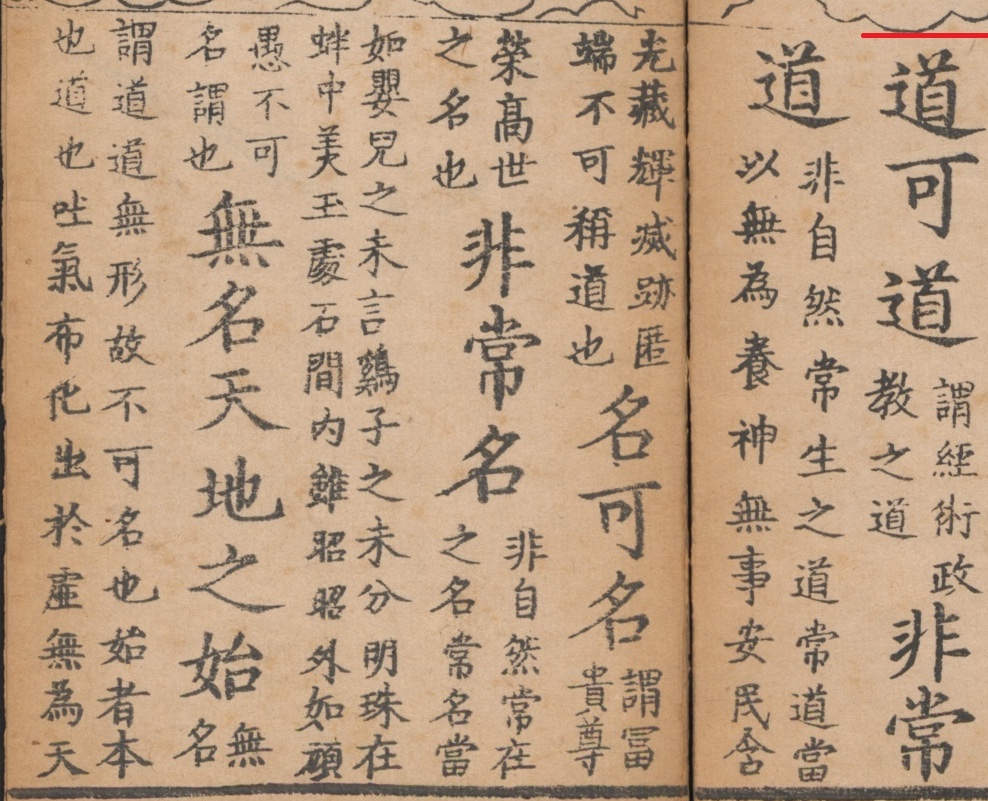 道可道
謂經術政
教之道
非常
道
非自然常生之道常道當
以無為養神無事安民含
光藏輝滅跡匿
端不可稱道也
名可名
謂富
貴尊
榮高世
之名也
非常名
非自然常在
之名常名當
如嬰兒之未言鷄子之未分明珠在
蚌中美玉處石間内雖昭昭外如頑
愚不可
名謂也
無名天地之始
無
名
謂道道無形故不可名也始者本
也道也吐氣布化出於虛無為天